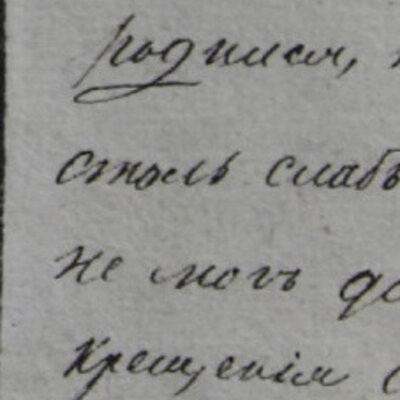 родился,
столь слабъ
не могъ
крещенія